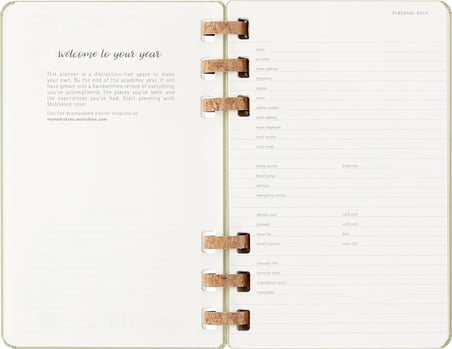 welcome to your year
This planner is a distraction-free space to make
your own. By the end of the academic year, it will
have grown into a handwritten record of everything
you've accomplished, the places you've been and
the experiences you've had. Start planning with
Moleskine now!
Find free downloadable planner templates on
mymoleskine.moleskine.com
PERSONAL DATA
name
surname
home address
telephone
mobile
email
work address
work telephone
work mobile
work email
family doctor telephone
blood group
allergies
emergency contact
identity card valid until
passport valid until
issued by
driver's licence valid until
favourite film
favourite book
inspirational quote